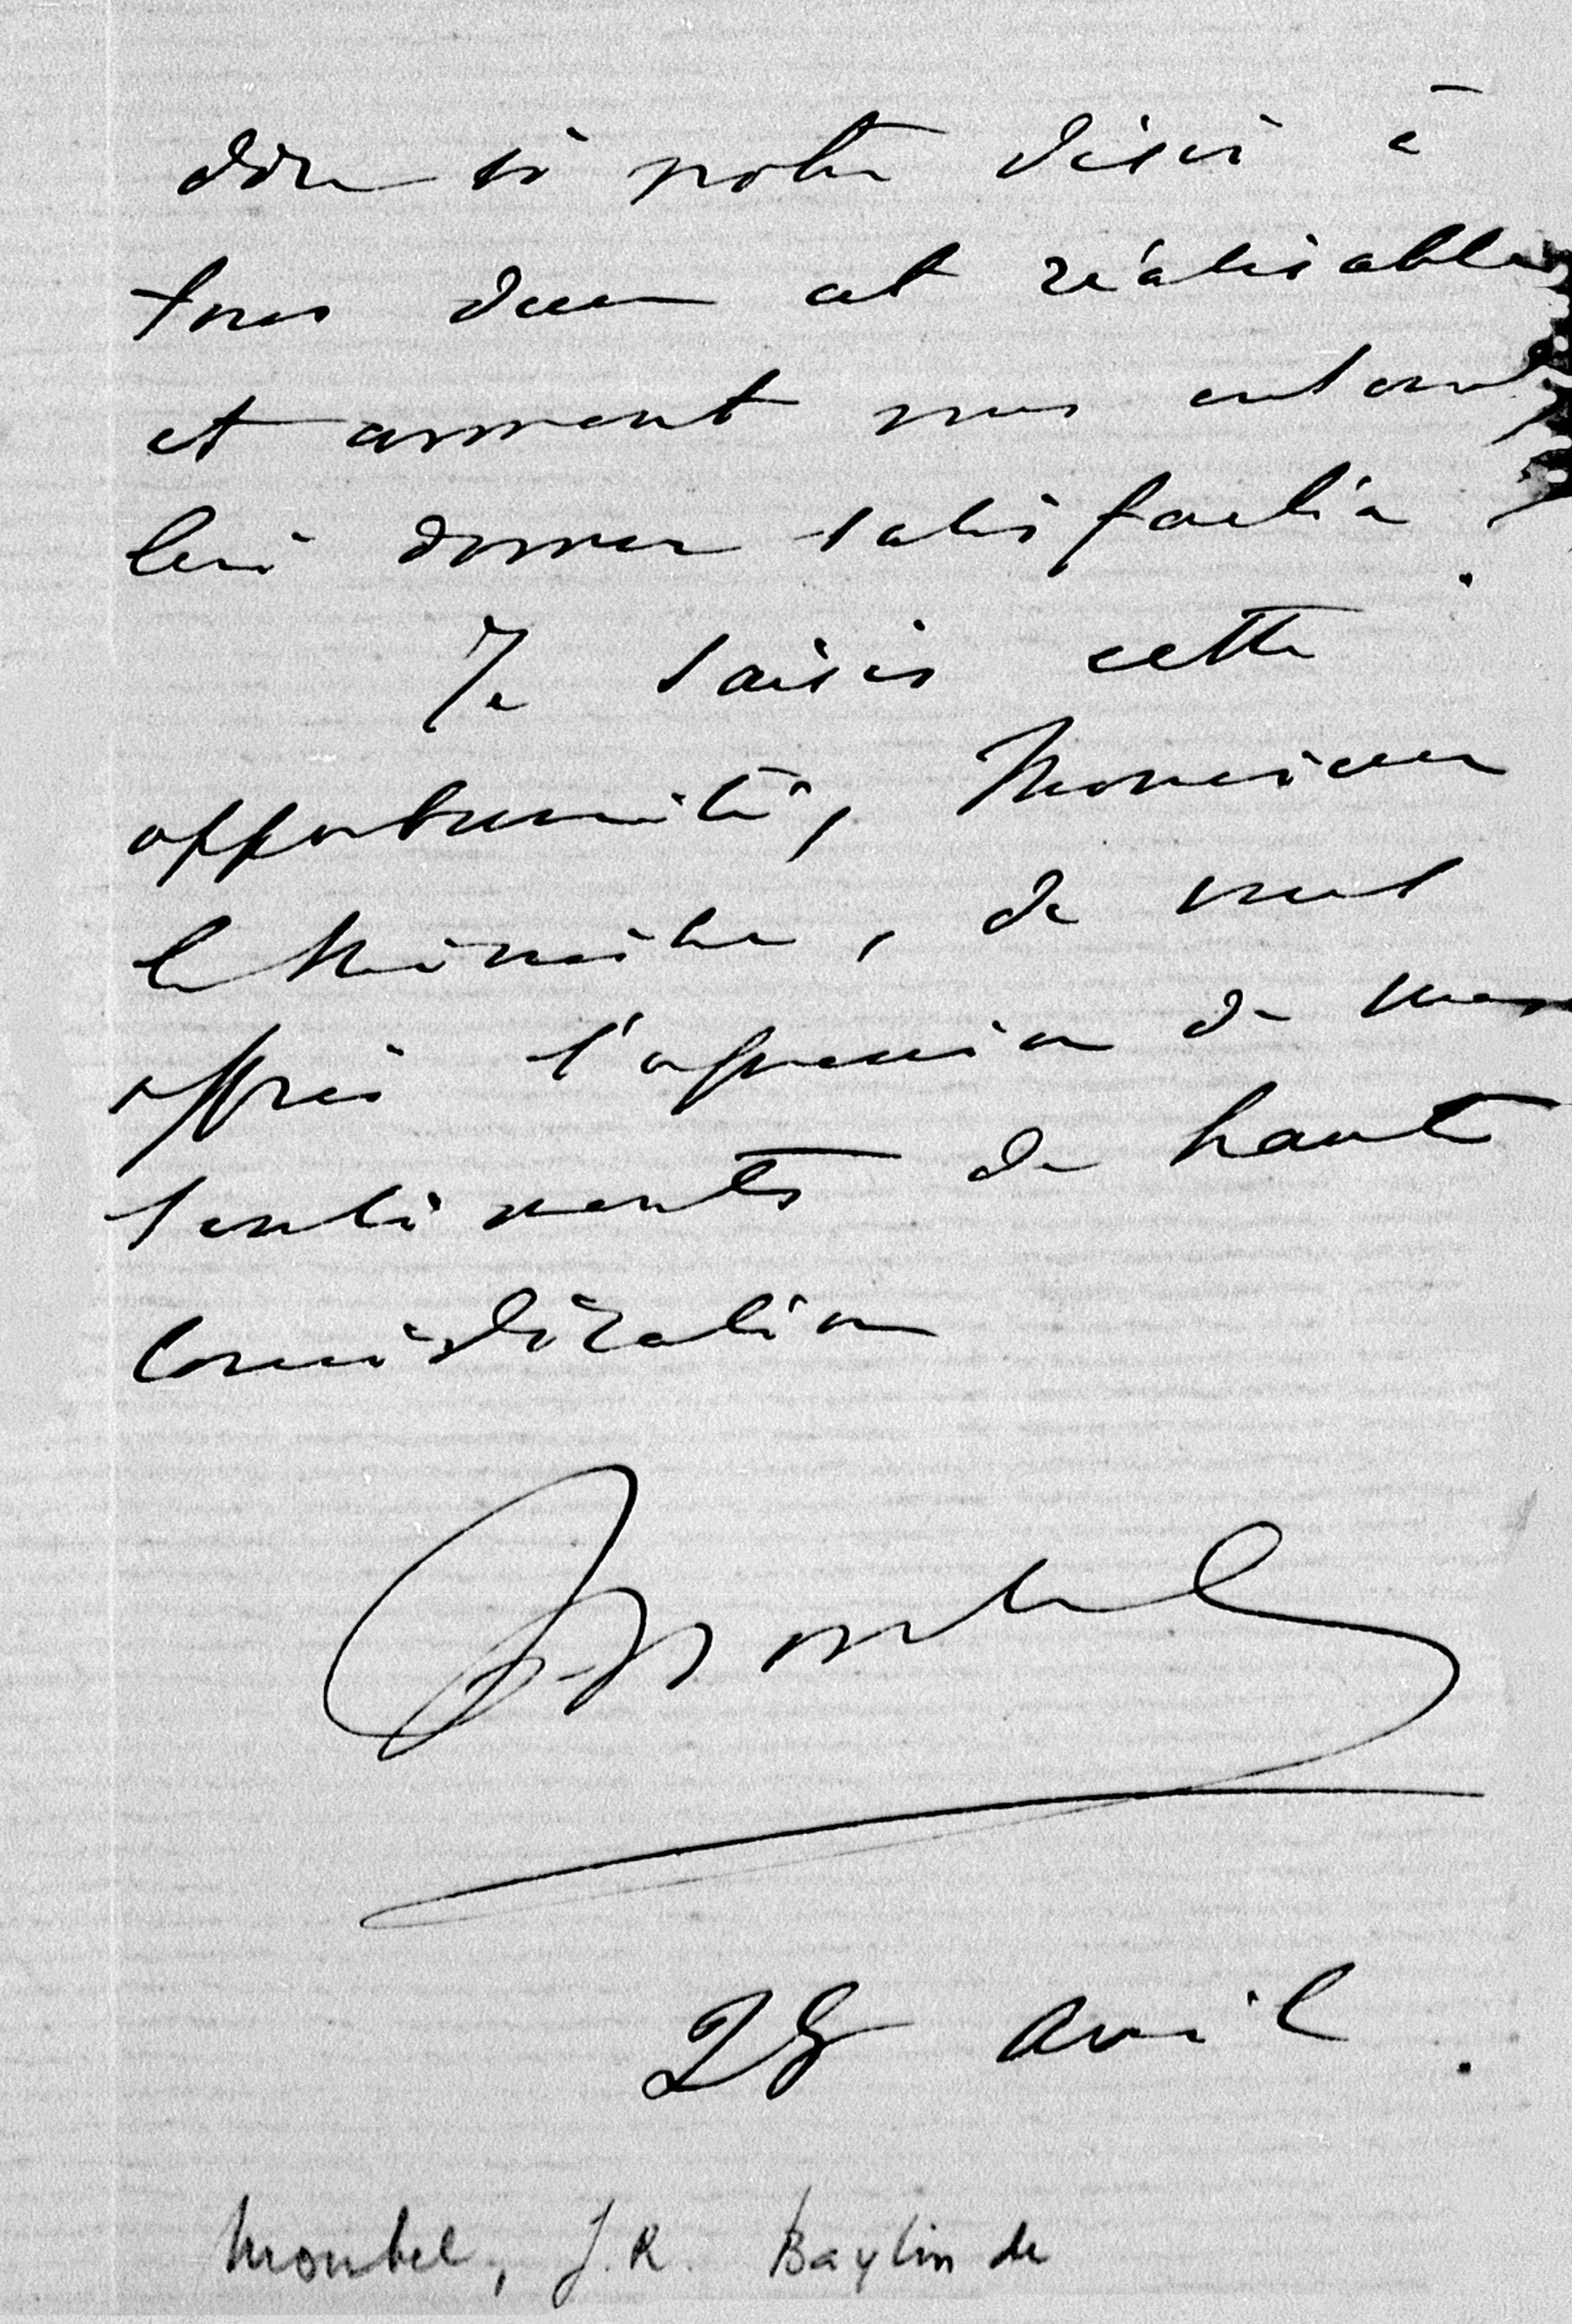 dire si notre désir à
tous deux est réalisable
et comment nous entendez
lui donner satisfaction.
Je saisis cette
opportunité, Monsieur
le Ministre, de vous
offrir l'expression de mes
sentiments de haute
considération
Monbel
28 avril.
Monbel, J.R. Baylin de